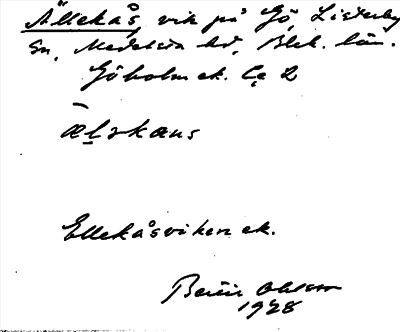 Ällekås, vik på Gö, Listerby
sn, Medelsta hd, Blek. län.
Göholm ek. Ca 2
ælskæns
Ellekåsviken ek.
Bertil Ohlsson
1928